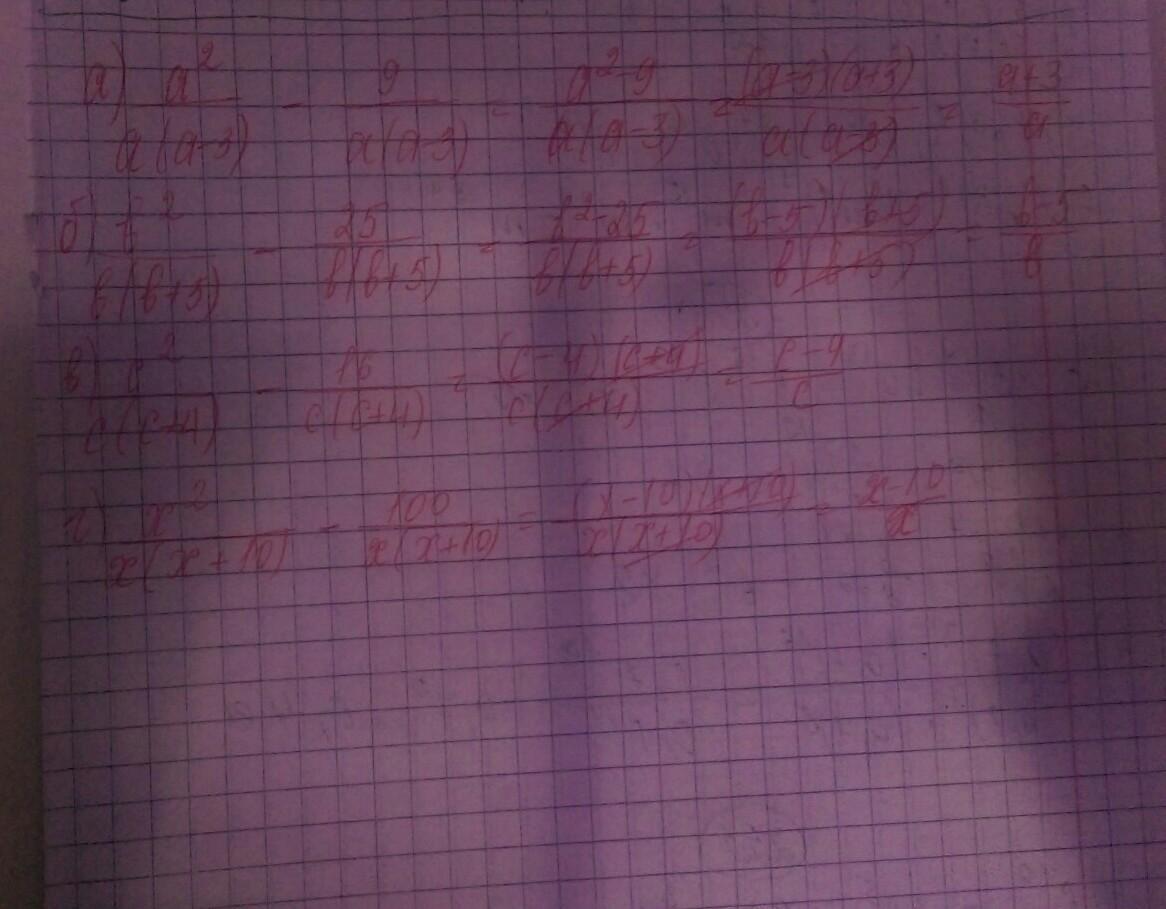 а) a²/a(a-3) - 9/a(a-3) = a²-9/a(a-3) = (a-3)(a+3)/a(a-3) = a+3/a
б) b²/b(b+5) - 25/b(b+5) = b²-25/b(b+5) = (b-5)(b+5)/b(b+5) = b-5/b
в) c²/c(c+4) - 16/c(c+4) = (c-4)(c+4)/c(c+4) = c-4/c
г) x²/x(x+10) - 100/x(x+10) = (x-10)(x+10)/x(x+10) = x-10/x